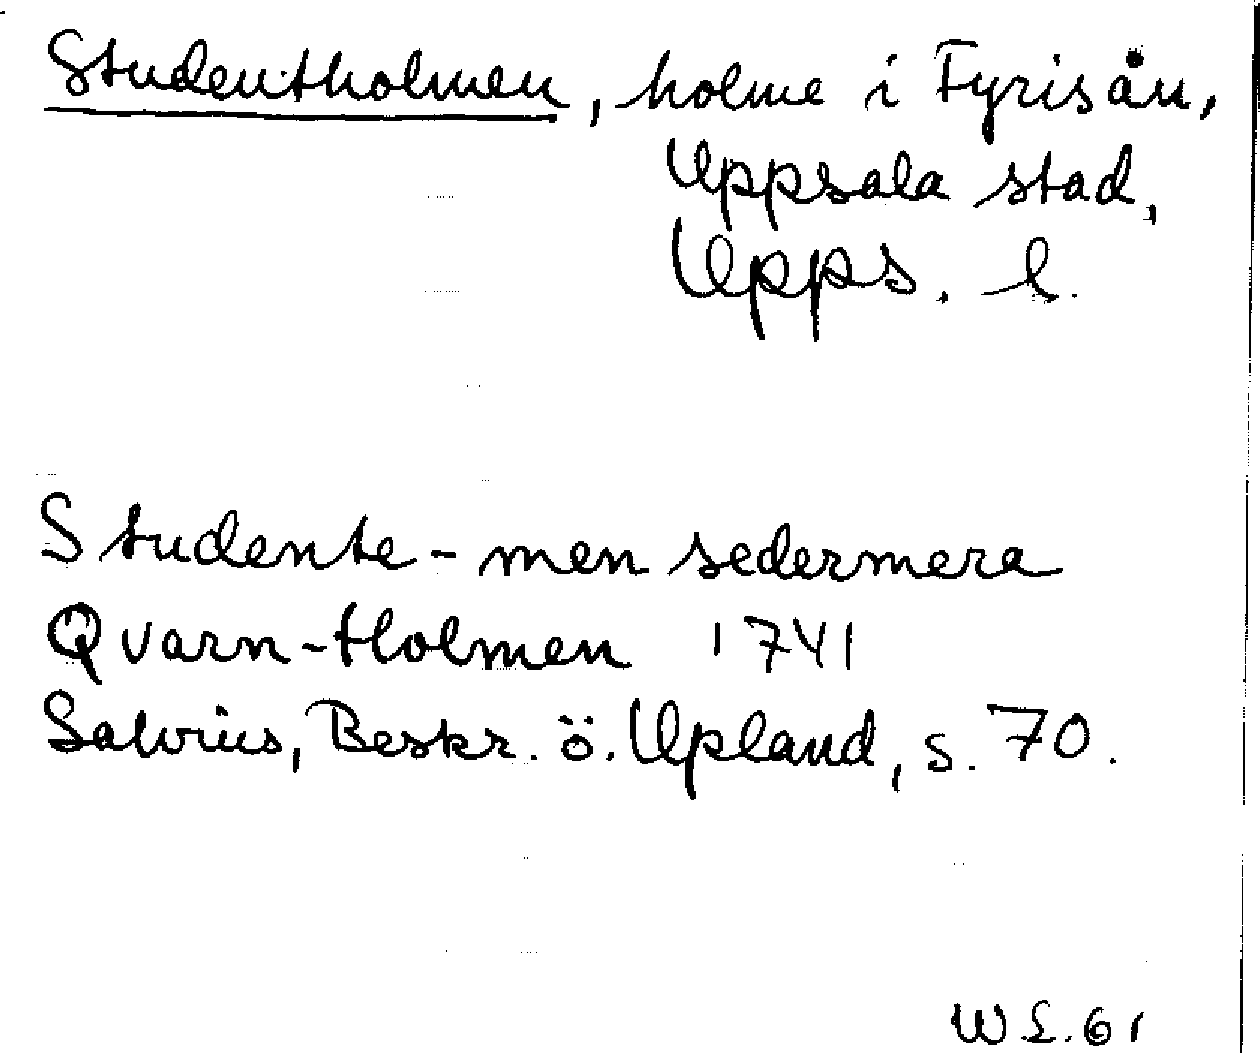 Studentholmen, holme i Fyrisån,
Uppsala stad,
Upps. l.
Studente - men sedermera
Qvarn-Holmen 1741
Salvius, Beskr. ö. Upland, s. 70.
W L. 61